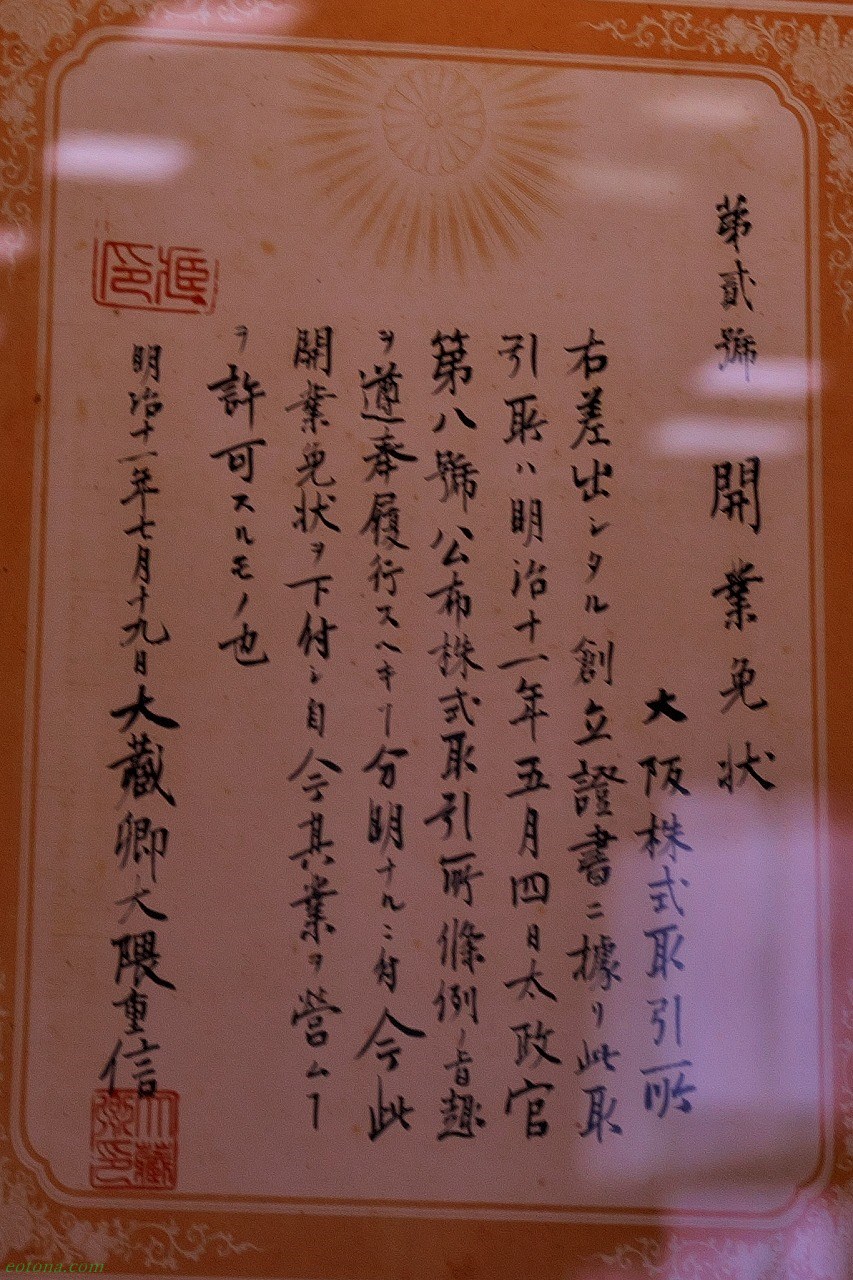 第貳號 開業免状
大阪株式取引所
右差出シタル創立證書ニ據リ此取
引所ハ明治十一年五月四日太政官
第八號公布株式取引所條例ノ旨趣
ヲ遵奉履行スヘキヿ分明ナルニ付今此
開業免状ヲ下付シ自今其業ヲ營ムヿ
ヲ許可スルモノ也
明治十一年七月十九日大藏卿大隈重信
大藏卿印
eotona.com